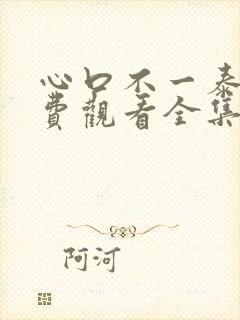 心口不一泰
費觀看全集
阿河